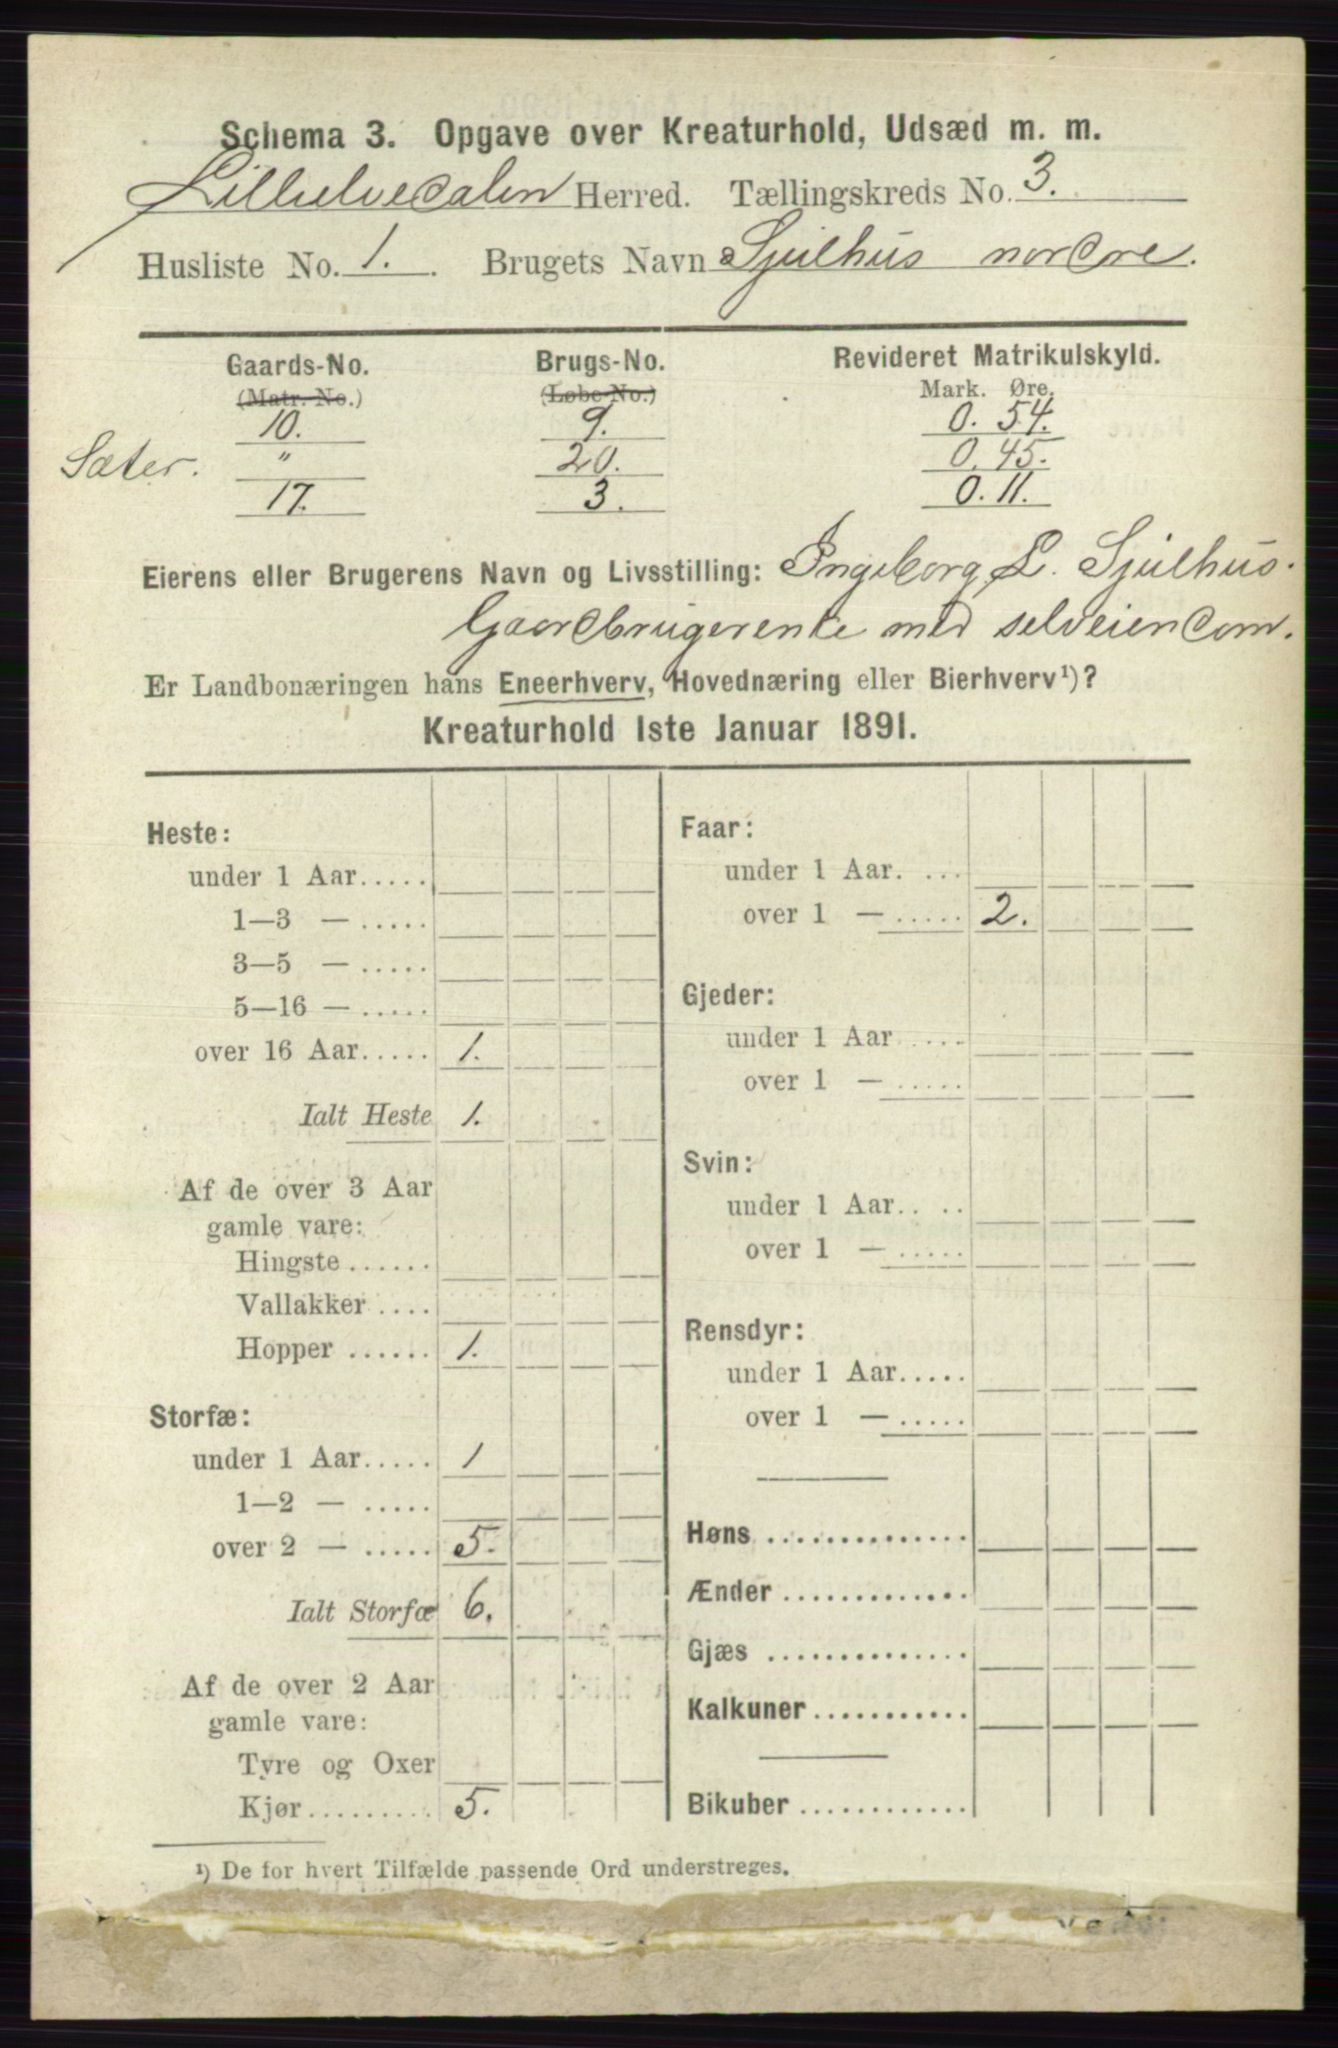 Schema 3. Opgave over Kreaturhold, Udsæd m. m.
Lilleelvedalen Herred. Tællingskreds No. 3.
Husliste No. 1. Brugets Navn Sjulhus nordre.
Gaards-No. Brugs-No. Revideret Matrikulskyld.
(Matr.-No.) (Løbe-No.) Mark. Øre.
10. 9. 0. 54.
Sæter. " 20. 0. 45.
17. 3. 0. 11.
Eierens eller Brugerens Navn og Livsstilling: Ingeborg L. Sjulhus.
Gaardbrugerenke med selveiendom.
Er Landbonæringen hans Eneerhverv, Hovednæring eller Bierhverv¹)?
Kreaturhold 1ste Januar 1891.
Heste:
under 1 Aar.....
1—3 — .....
3—5 — .....
5—16 — .....
over 16 Aar..... 1.
Ialt Heste 1.
Af de over 3 Aar
gamle vare:
Hingste......
Vallakker....
Hopper...... 1.
Storfæ:
under 1 Aar..... 1
1—2 — .....
over 2 — ..... 5.
Ialt Storfæ 6.
Af de over 2 Aar
gamle vare:
Tyre og Oxer
Kjør......... 5.
Faar:
under 1 Aar. ...
over 1 — ..... 2.
Gjeder:
under 1 Aar .....
over 1 — .....
Svin:
under 1 Aar.. ..
over 1 — .....
Rensdyr:
under 1 Aar.....
over 1 — .....
Høns ..............
Ænder .............
Gjæs ..............
Kalkuner ...........
Bikuber ............
¹) De for hvert Tilfælde passende Ord understreges.